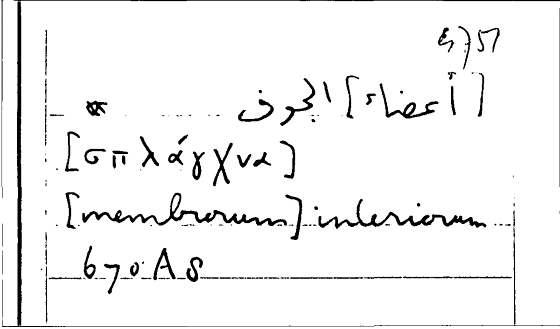 * [أعضاء] الجوف
[σπλάγχνα]
[membrorum] interiorum
670 A 8